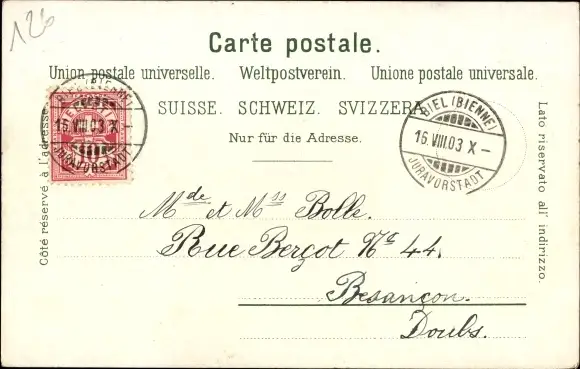 126
Carte postale.
Union postale universelle. Weltpostverein. Unione postale universale.
SUISSE. SCHWEIZ. SVIZZERA
Nur für die Adresse.
Côté réservé à l'adresse
Lato riservato all' indirizzo.
BIEL (BIENNE)
16.VIII.03 X –
JURAVORSTADT
BIEL (BIENNE)
16.VIII.03 X –
JURAVORSTADT
10
Mde et Mss Bolle.
Rue Berçot No 44.
Besançon.
Doubs.